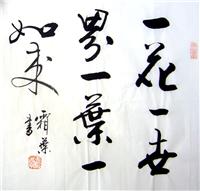 一花一世
界一葉一
如来
霜葉
書